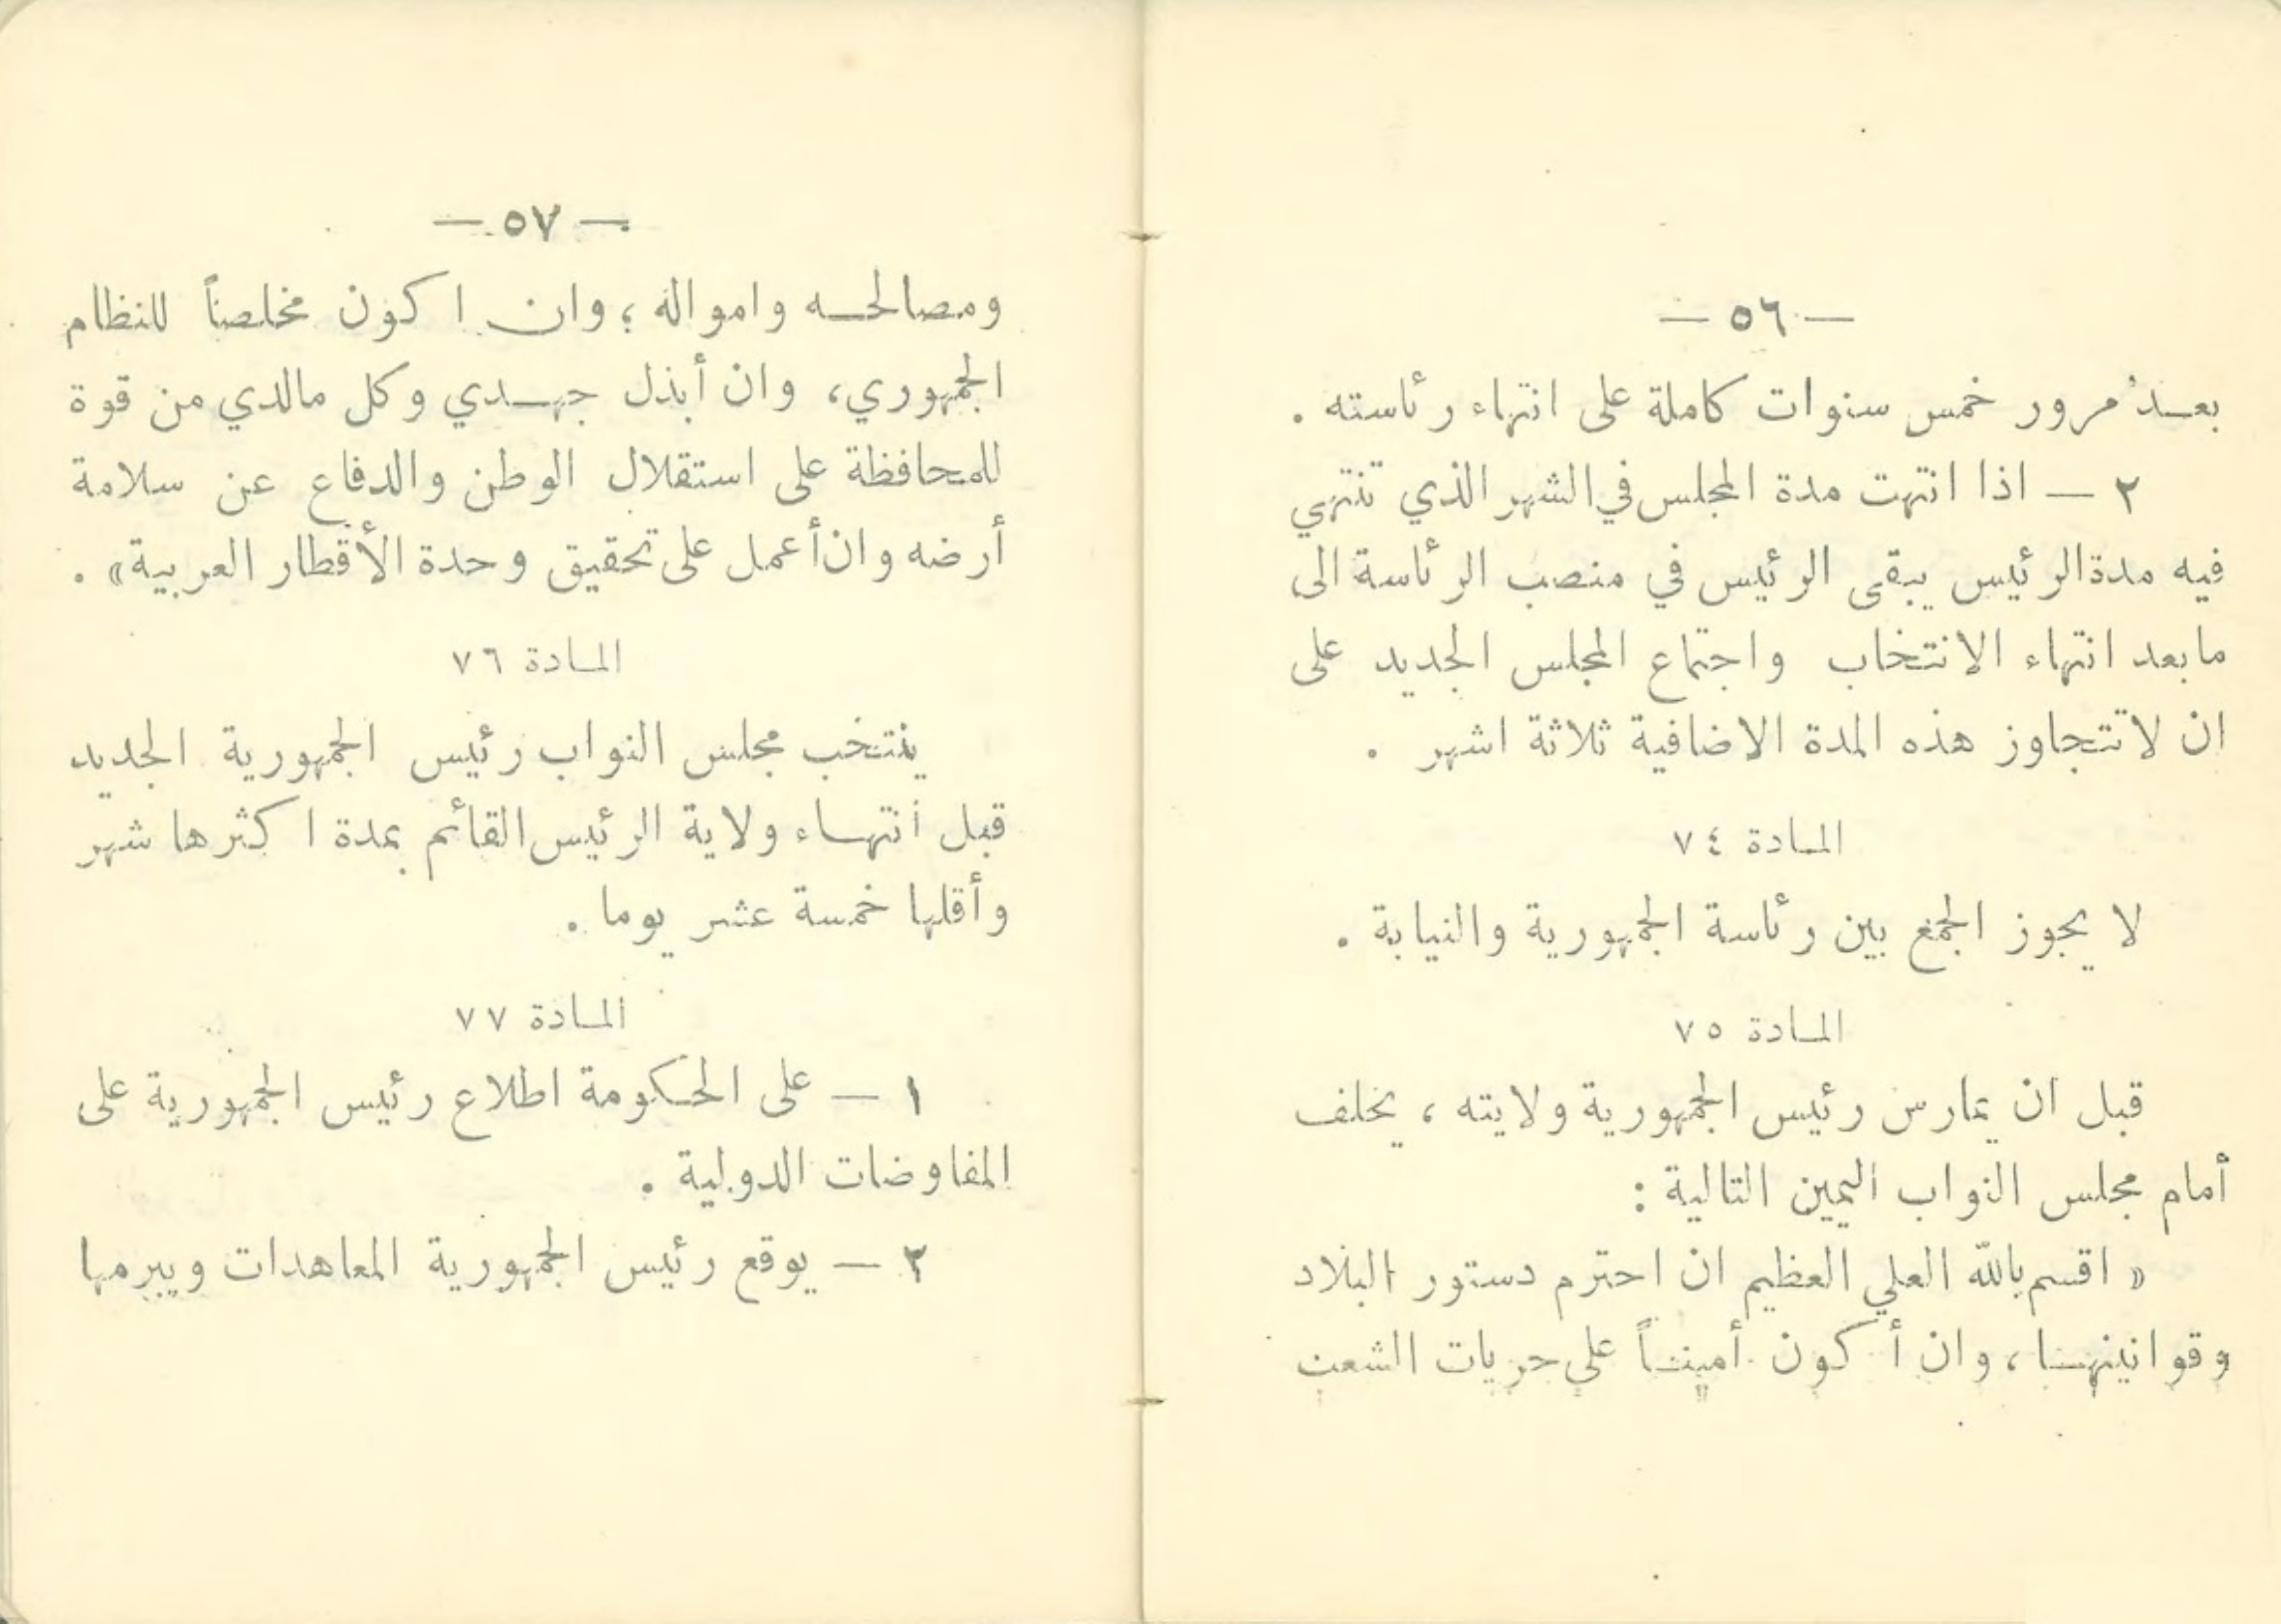 — ٥٦ —
بعد مرور خمس سنوات كاملة على انتهاء رئاسته .
٢ — اذا انتهت مدة المجلس في الشهر الذي تنتهي
فيه مدة الرئيس يبقى الرئيس في منصب الرئاسة الى
مابعد انتهاء الانتخاب واجتماع المجلس الجديد على
ان لاتتجاوز هذه المدة الاضافية ثلاثة اشهر .
المادة ٧٤
لا يجوز الجمع بين رئاسة الجمهورية والنيابة .
المادة ٧٥
قبل ان يمارس رئيس الجمهورية ولايته ، يحلف
أمام مجلس النواب اليمين التالية :
« اقسم بالله العلي العظيم ان احترم دستور البلاد
وقوانينها ، وان أكون أميناً على حريات الشعب
— ٥٧ —
ومصالحه وامواله ؛ وان اكون مخلصاً للنظام
الجمهوري، وان أبذل جهدي وكل مالدي من قوة
للمحافظة على استقلال الوطن والدفاع عن سلامة
أرضه وان أعمل على تحقيق وحدة الأقطار العربية» .
المادة ٧٦
ينتخب مجلس النواب رئيس الجمهورية الجديد
قبل انتهاء ولاية الرئيس القائم بمدة اكثرها شهر
وأقلها خمسة عشر يوما .
المادة ٧٧
١ — على الحكومة اطلاع رئيس الجمهورية على
المفاوضات الدولية .
٢ — يوقع رئيس الجمهورية المعاهدات ويبرمها